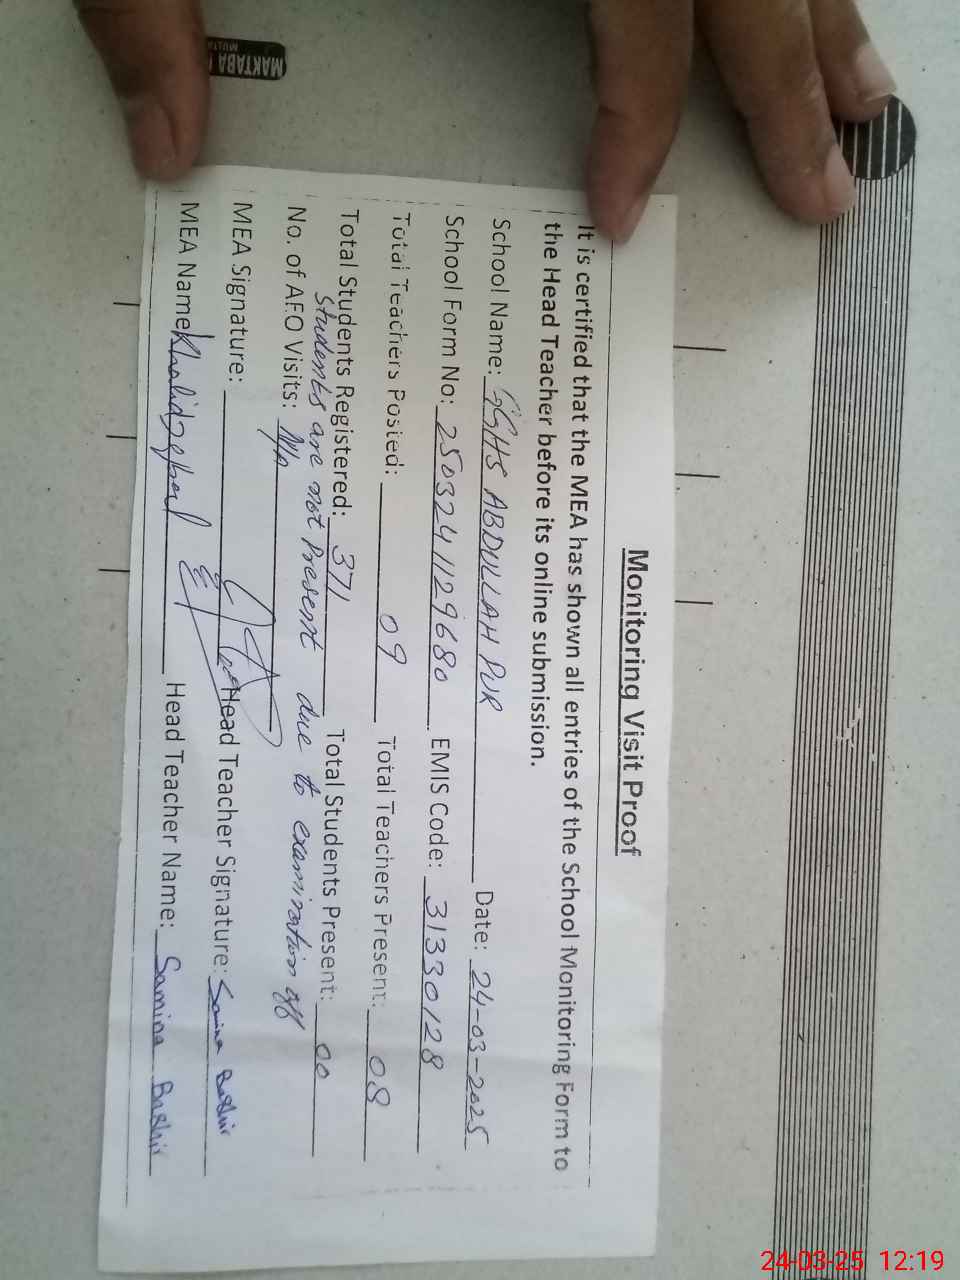 MAKTABA
MULTA
Monitoring Visit Proof
It is certified that the MEA has shown all entries of the School Monitoring Form to
the Head Teacher before its online submission.
School Name: GGHS ABDULLAH PUR Date: 24-03-2025
School Form No: 25032411129680 EMIS Code: 31330128
Total Teachers Posted: 09 Total Teachers Present: 08
Total Students Registered: 371 Total Students Present: 00
Students are not Present due to examination off
No. of AEO Visits: N/A
MEA Signature: Head Teacher Signature: Samina Bashir
MEA Name: Head Teacher Name: Samina Bashir
24-03-25 12:19